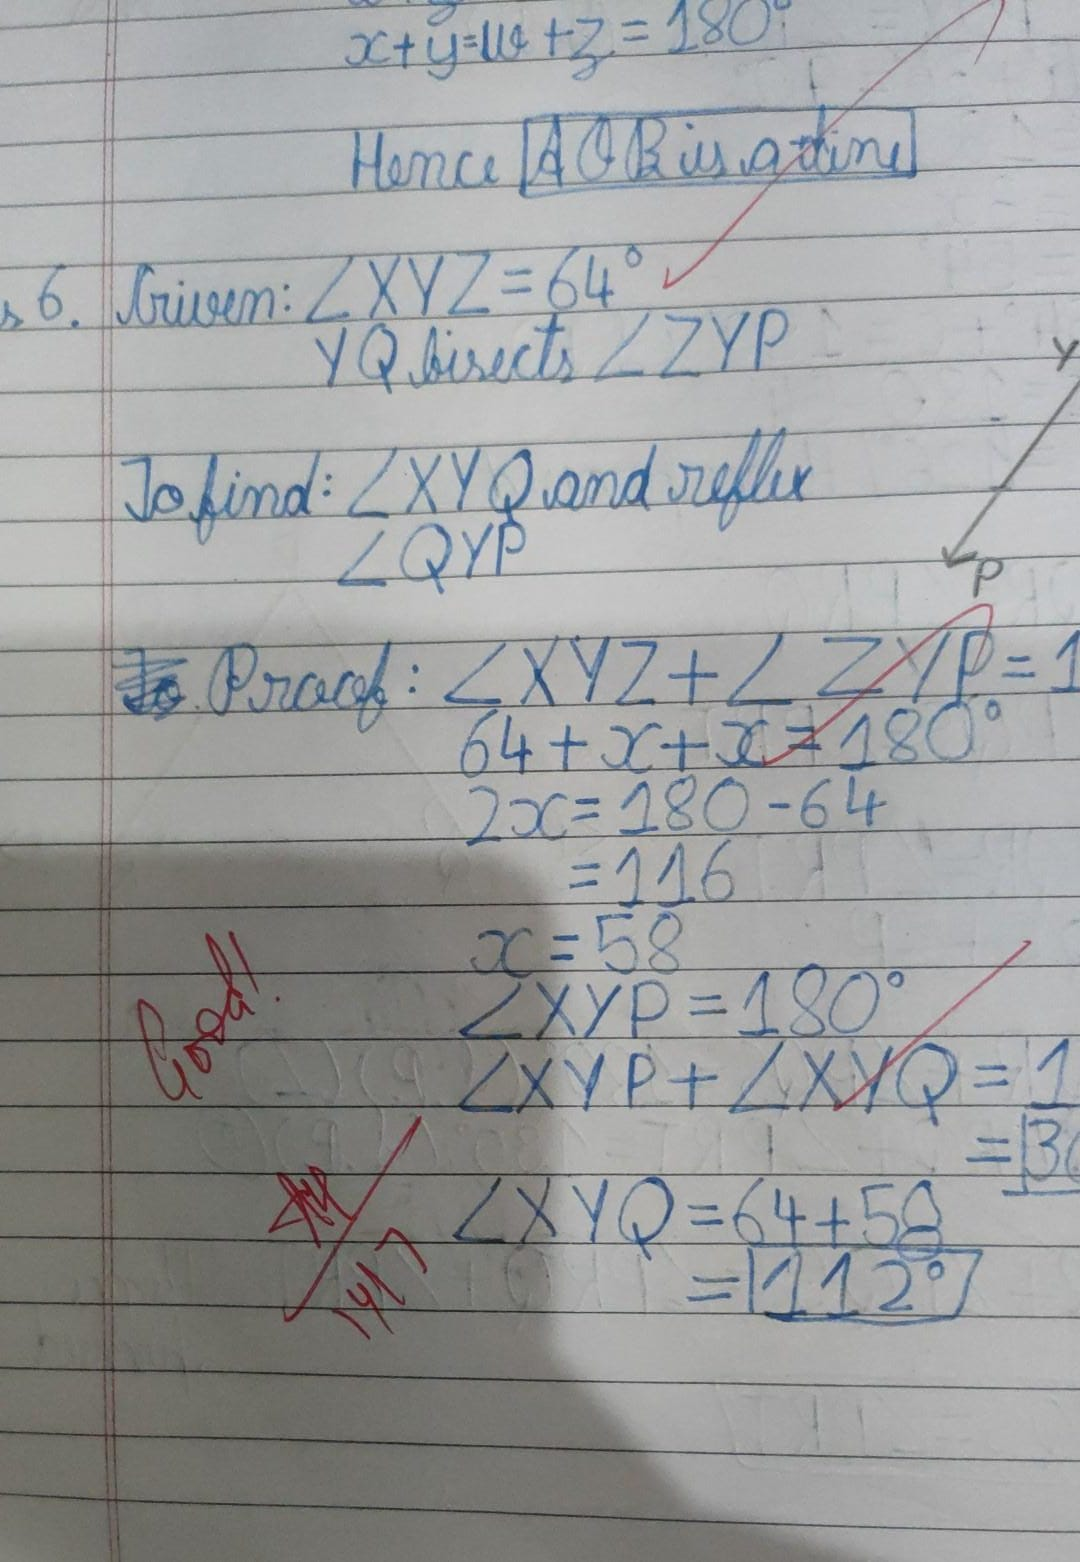 x+y=w+z=180°
Hence AOB is a line
6. Given: ∠XYZ=64°
YQ bisects ∠ZYP
Y
To find: ∠XYQ and reflex
∠QYP
P
Proof: ∠XYZ+∠ZYP=1
64+x+x=180°
2x=180-64
=116
x=58
∠XYP=180°
∠XYP+∠XYQ=1
=30
Good!
∠XYQ=64+58
=112°
14/7